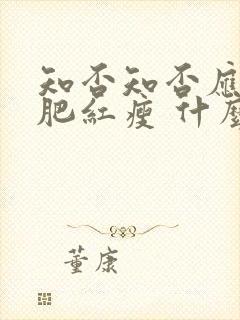 知否知否應
肥紅瘦 什麼
董康